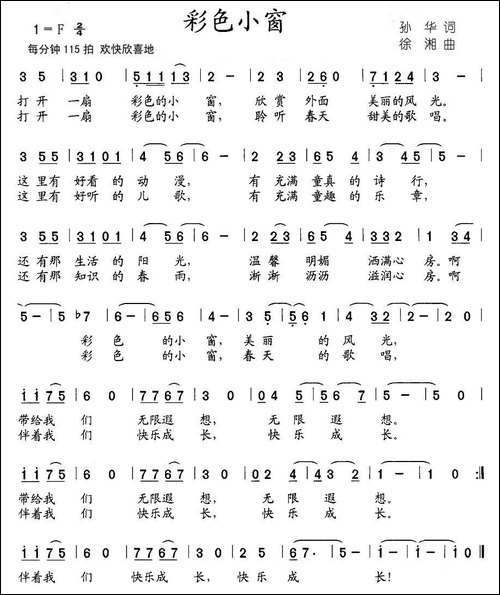 彩色小窗
1=F 2/4
孙 华 词
徐 湘 曲
每分钟 115 拍 欢快欣喜地
3 5 | 3 1 0 | 5 1 1 1 3 | 2 - | 2 3 | 2 6 0 | 7 1 2 4 | 3 - |
打 开 一扇 彩色的小 窗, 欣 赏 外面 美丽的风 光。
打 开 一扇 彩色的小 窗, 聆 听 春天 甜美的歌 唱。
3 5 5 | 3 1 0 1 | 4 5 6 | 6 - | 2 2 3 | 6 5 4 | 3 4 5 | 5 - |
这 里有 好看 的 动 漫, 有 充满 童真 的 诗 行,
这 里有 好听 的 儿 歌, 有 充满 童趣 的 乐 章,
3 5 5 | 3 1 0 1 | 4 5 6 | 6 - | 2 2 3 | 6 5 4 | 3 3 2 | 1 3 4 |
还 有那 生活 的 阳 光, 温 馨 明媚 洒满心 房。啊
还 有那 知识 的 春 雨, 渐 渐 沥沥 滋润心 房。啊
5 - | 5 ♭7 | 6 - | 6 5 6 | 4 - | 3 5 | 5 6 1 | 4 3 2 | 2 - | 2 0 |
彩 色 的小 窗, 美 丽 的 风 光,
彩 色 的小 窗, 春 天 的 歌 唱,
1 1 7 5 | 6 0 | 7 7 6 7 | 3 0 | 0 4 5 | 5 6 1 | 2 - | 2 - |
带给我 们 无限遐 想, 无 限 遐 想。
伴着我 们 快乐成 长, 快 乐 成 长。
1 1 7 5 | 6 0 | 7 7 6 7 | 3 0 | 0 2 4 | 4 3 2 | 1 - | 1 - :|
带给我 们 无限遐 想, 无 限 遐 想。
伴着我 们 快乐成 长, 快 乐 成 长。
1 1 7 5 | 6 0 | 7 7 6 7 | 3 0 | 2 5 | 6 7· | 5 - | 1 - | 1 0 |
伴着我 们 快乐成 长, 快 乐 成 长!